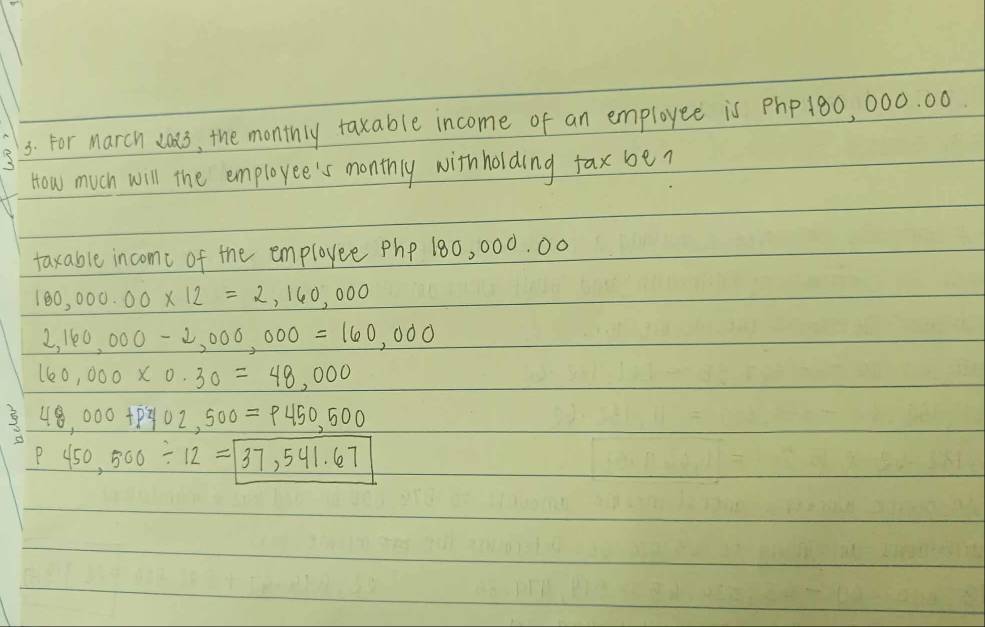 3. For March 2023, the monthly taxable income of an employee is Php 180,000.00.
How much will the employee's monthly withholding tax be?
taxable income of the employee Php 180,000.00
180,000.00 × 12 = 2,160,000
2,160,000 - 2,000,000 = 160,000
160,000 × 0.30 = 48,000
48,000 + P402,500 = P450,500
P 450,500 ÷ 12 = 37,541.67